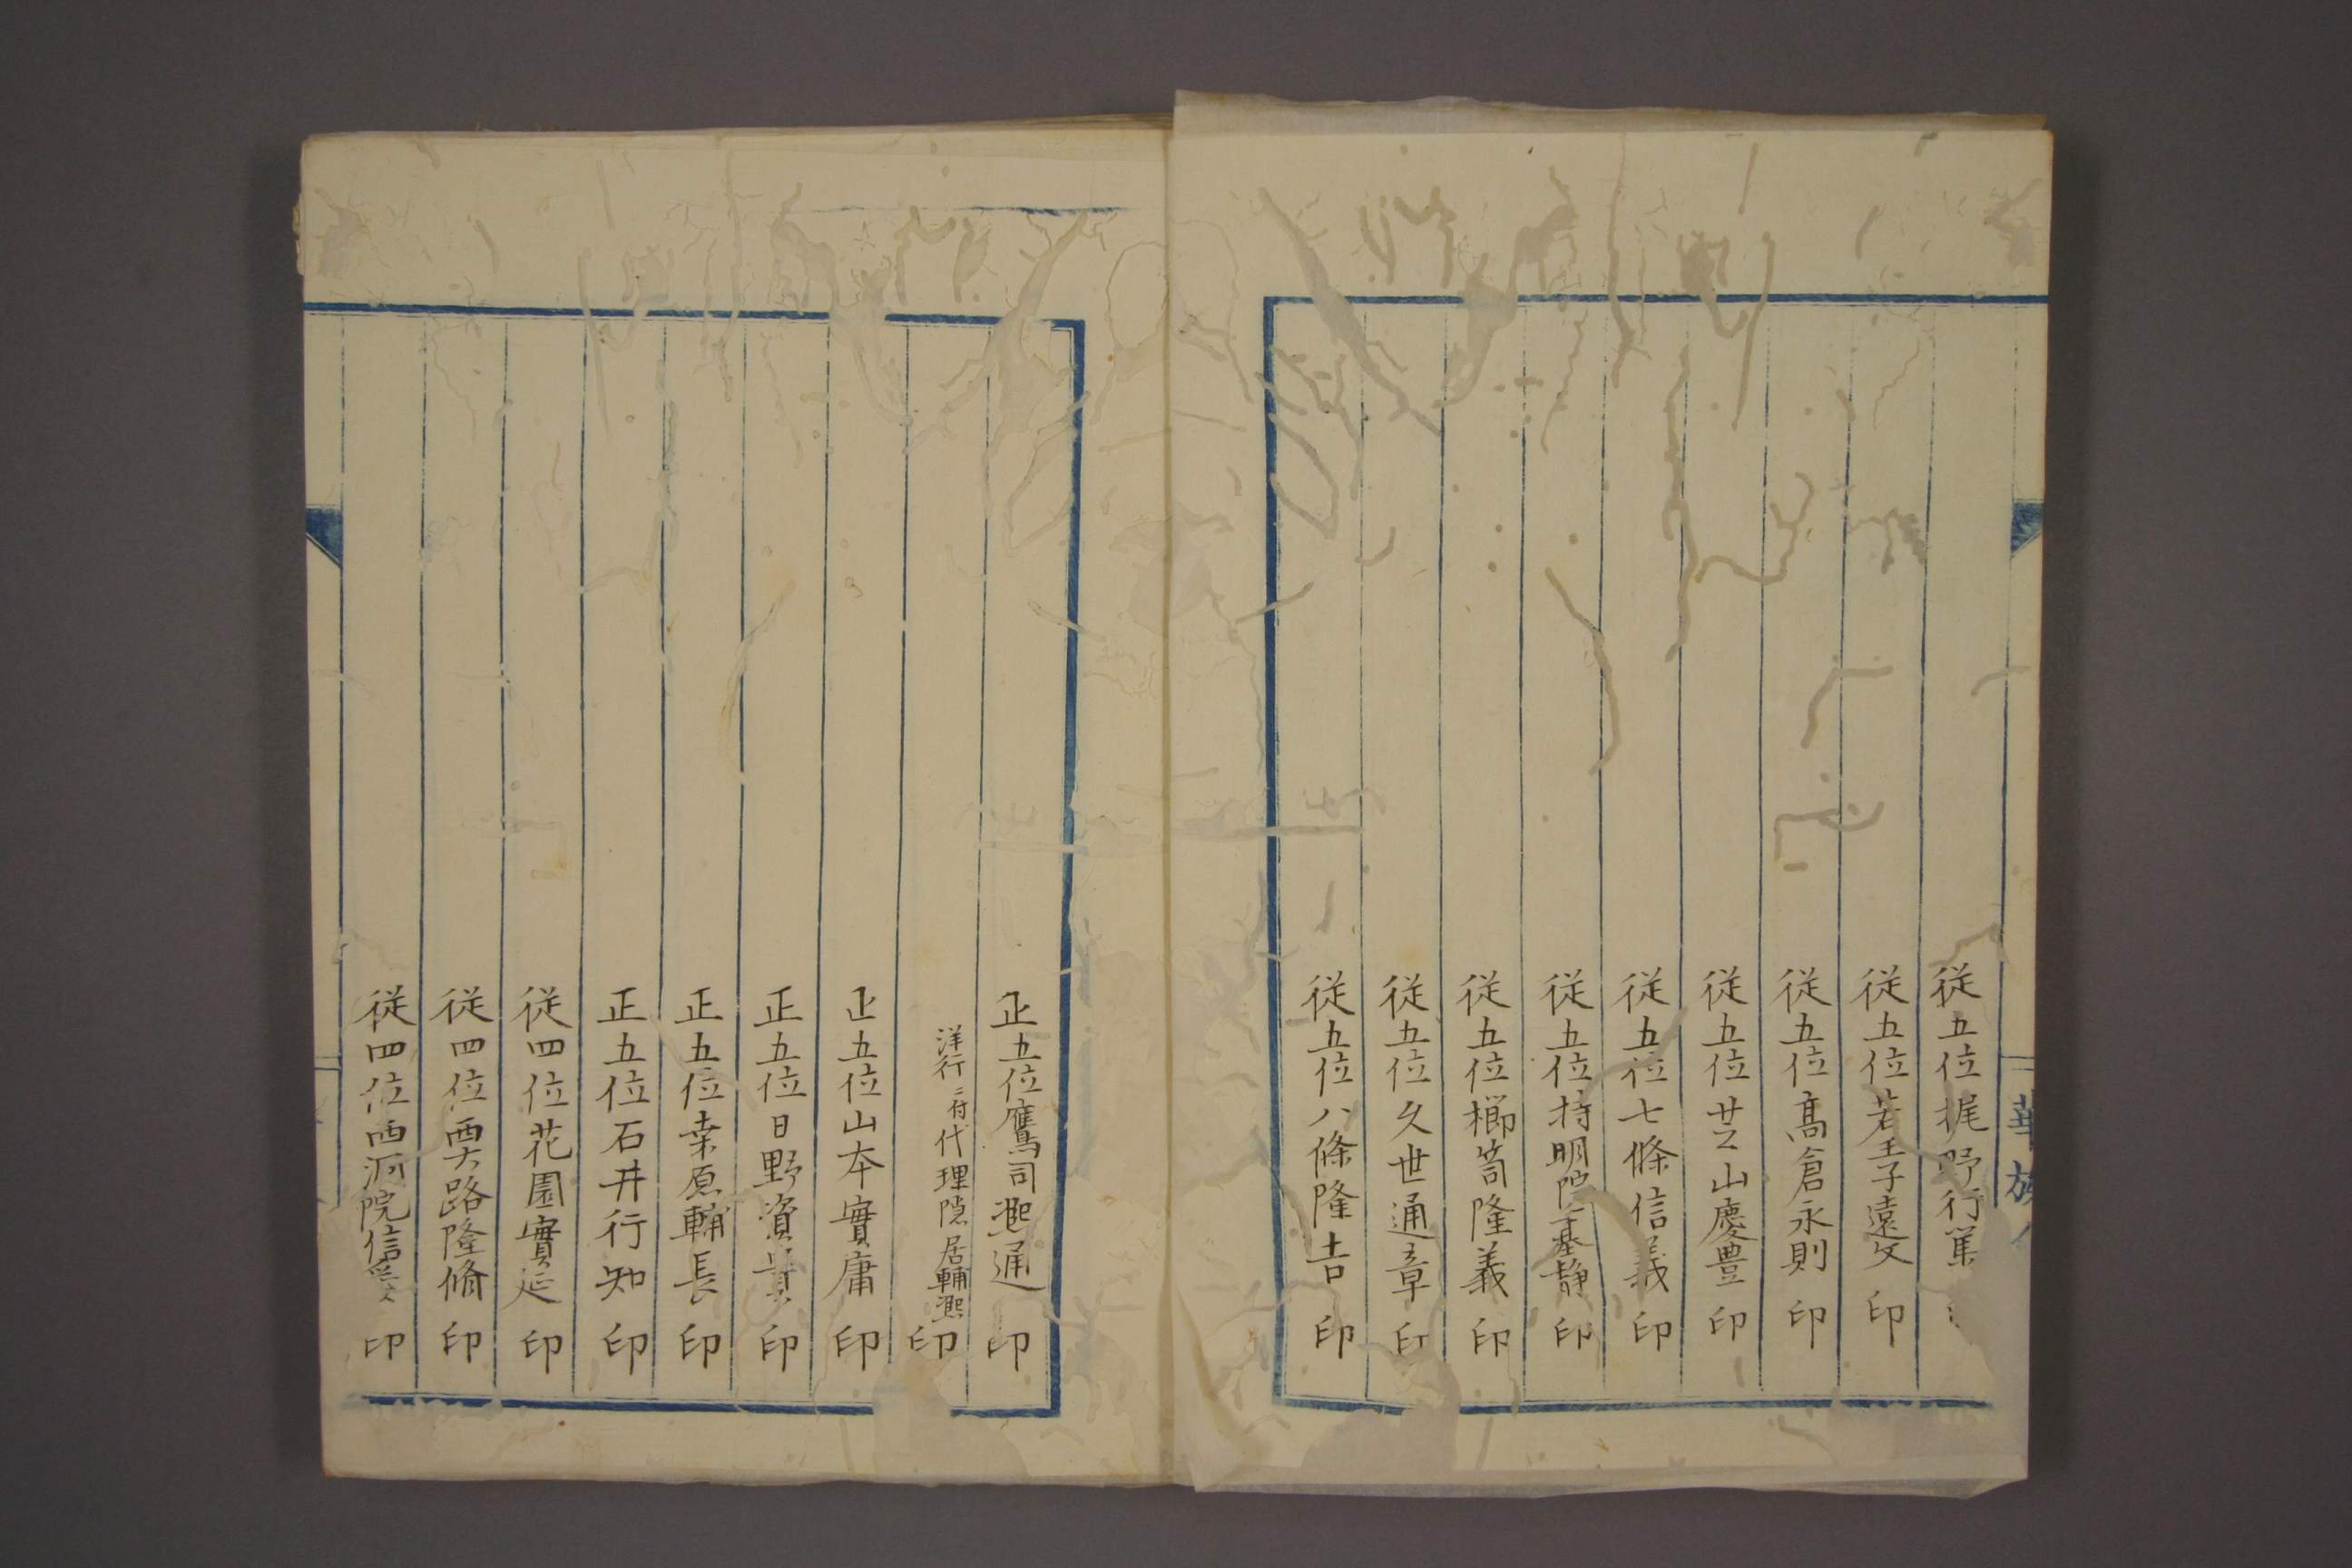 華族
従五位梶野行篤
従五位若王子遠文 印
従五位髙倉永則 印
従五位芝山慶豊 印
従五位七條信義 印
従五位持明院基静 印
従五位櫛笥隆義 印
従五位久世通章 印
従五位八條隆吉 印
正五位鷹司熈通 印
洋行ニ付代理隠居輔凞 印
正五位山本實庸 印
正五位日野資貴 印
正五位桒原輔長 印
正五位石井行知 印
従四位花園實延 印
従四位四大路隆脩 印
従四位西洞院信愛 印